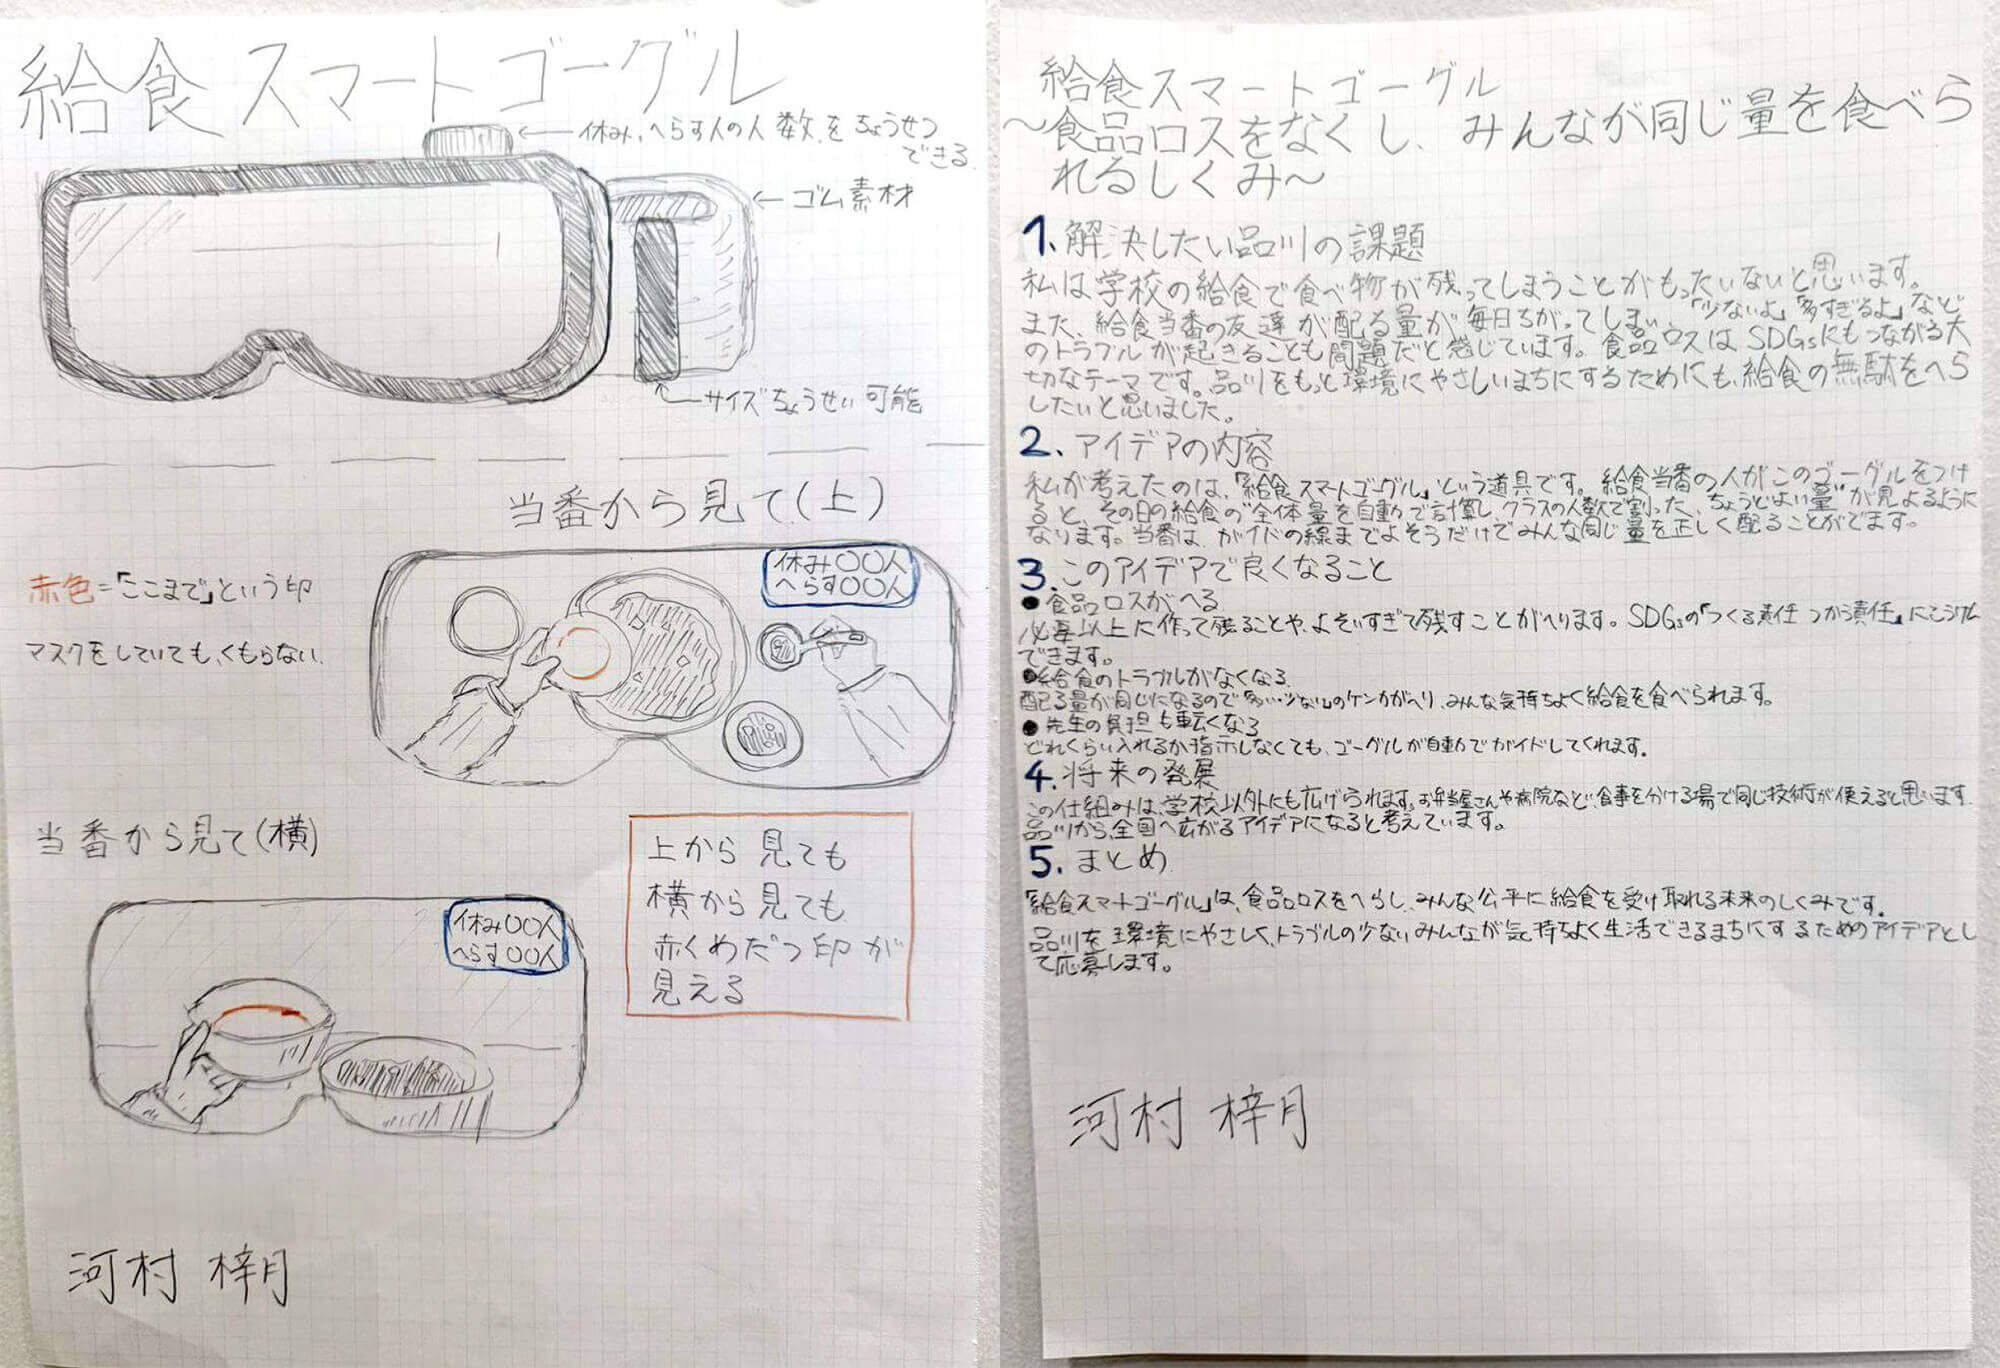 給食スマートゴーグル
休み、へらす人の人数をちょうせつ
できる
ゴム素材
サイズちょうせい可能
当番から見て(上)
休み〇〇人
へらす〇〇人
赤色=「ここまで」という印
マスクをしていても、くもらない
当番から見て(横)
休み〇〇人
へらす〇〇人
上から見ても
横から見ても
赤くめだつ印が
見える
河村 梓月
給食スマートゴーグル
〜食品ロスをなくし、みんなが同じ量を食べら
れるしくみ〜
1. 解決したい品川の課題
私は学校の給食で食べ物が残ってしまうことがもったいないと思います。
また、給食当番の友達が配る量が毎日ちがってしまい、「少ないよ」「多すぎるよ」など
のトラブルが起きることも問題だと感じています。食品ロスはSDGsにもつながる大
切なテーマです。品川をもっと環境にやさしいまちにするためにも、給食の無駄をへら
したいと思いました。
2. アイデアの内容
私が考えたのは、「給食スマートゴーグル」という道具です。給食当番の人がこのゴーグルをつけ
ると、その日の給食の“全体量を自動で計算し、クラスの人数で割った、ちょうどよい量”が見よるように
なります。当番は、ガイドの線までよそうだけでみんな同じ量を正しく配ることがでます。
3. このアイデアで良くなること
●食品ロスがへる
必要以上に作って残ることや、よそいすぎて残すことがへります。SDGsの「つくる責任 つかう責任」にこうけん
できます。
●給食のトラブルがなくなる
配る量が同じになるので「多い・少ない」のケンカがへり、みんな気持ちよく給食を食べられます。
●先生の負担も軽くなる
どれくらい入れるか指示しなくても、ゴーグルが自動でガイドしてくれます。
4. 将来の発展
この仕組みは、学校以外にも広げられます。お弁当屋さんや病院など、食事を分ける場で同じ技術が使えると思います。
品川から、全国へ広がるアイデアになると考えています。
5. まとめ
「給食スマートゴーグル」は、食品ロスをへらし、みんな公平に給食を受け取れる未来のしくみです。
品川を環境にやさしく、トラブルの少ないみんなが気持ちよく生活できるまちにするためのアイデアとし
て応募します。
河村 梓月